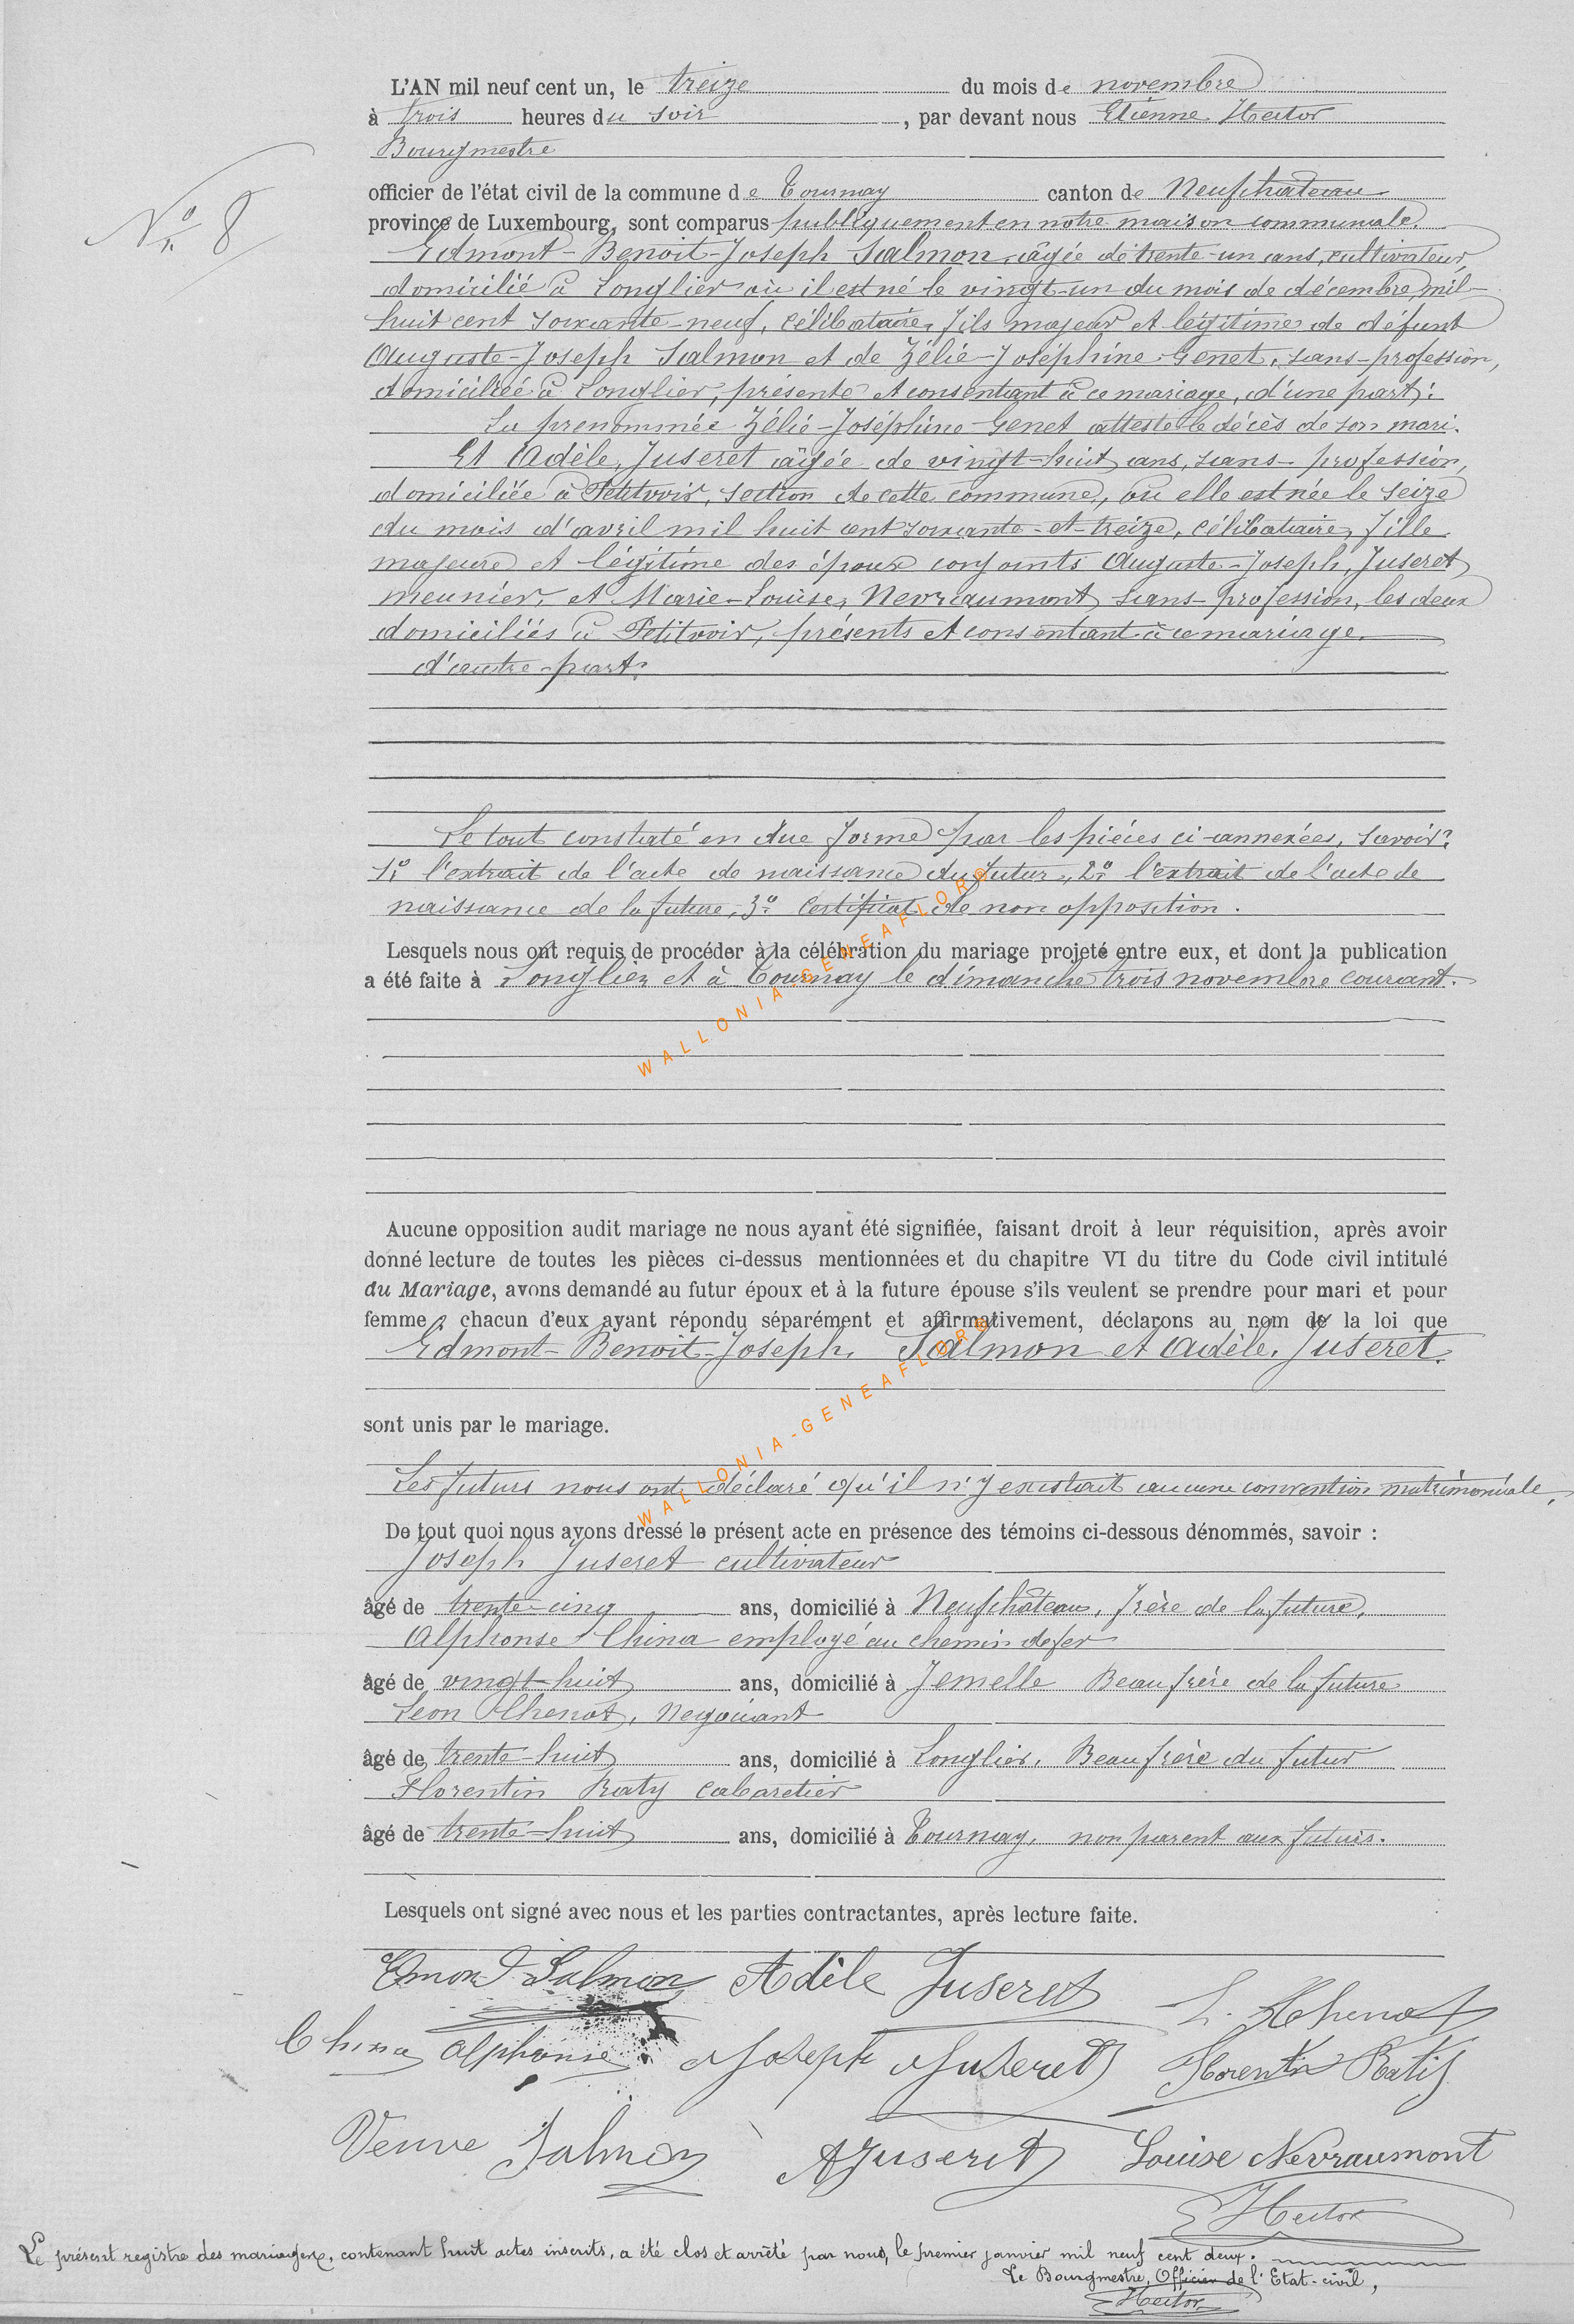 L'AN mil neuf cent un, le treize du mois de novembre
à trois heures du soir, par devant nous Etienne Hector
Bourgmestre
officier de l'état civil de la commune de Tournay canton de Neufchateau
N° 8
province de Luxembourg, sont comparus publiquement en notre maison communale.
Edmont-Benoit-Joseph Salmon, âgée de trente-un ans, cultivateur,
domicilié à Longlier où il est né le vingt-un du mois de décembre mil-
huit cent soixante-neuf, célibataire, fils majeur et légitime de défunt
Auguste-Joseph Salmon et de Zélie-Joséphine Genet, sans-profession,
domiciliée à Longlier, présente et consentant à ce mariage, d'une part:
La prénommée Zélie-Joséphine Genet atteste le décès de son mari.
Et Adèle, Juseret âgée de vingt-huit ans, sans-profession,
domiciliée à Petitvoir, section de cette commune, où elle est née le seize
du mois d'avril mil huit cent soixante-et-treize, célibataire, fille
majeure et légitime des époux conjoints Auguste-Joseph, Juseret
meunier, et Marie-Louise, Nevraumont sans-profession, les deux
domiciliés à Petitvoir, présents et consentant à ce mariage.
d'autre-part.
Le tout constaté en due forme par les pièces ci-annexées, savoir:
1° l'extrait de l'acte de naissance du futur, 2° l'extrait de l'acte de
naissance de la future, 3° Certificat de non opposition.
Lesquels nous ont requis de procéder à la célébration du mariage projeté entre eux, et dont la publication
a été faite à Longlier et à Tournay le dimanche trois novembre courant.
WALLONIA-GENEAFLORE
Aucune opposition audit mariage ne nous ayant été signifiée, faisant droit à leur réquisition, après avoir
donné lecture de toutes les pièces ci-dessus mentionnées et du chapitre VI du titre du Code civil intitulé
du Mariage, avons demandé au futur époux et à la future épouse s'ils veulent se prendre pour mari et pour
femme; chacun d'eux ayant répondu séparément et affirmativement, déclarons au nom de la loi que
Edmont-Benoit-Joseph, Salmon et Adèle, Juseret.
sont unis par le mariage.
WALLONIA-GENEAFLORE
Les futurs nous ont déclaré qu'il n'y existait aucune convention matrimoniale,
De tout quoi nous avons dressé le présent acte en présence des témoins ci-dessous dénommés, savoir :
Joseph Juseret cultivateur
âgé de trente-cinq ans, domicilié à Neufchâteau, frère de la future,
Alphonse China employé au chemin de fer
âgé de vingt-huit ans, domicilié à Jemelle Beau frère de la future
Léon Chenot, Negociant
âgé de trente-huit ans, domicilié à Longlier, Beau frère du futur
Florentin Raty cabaretier
âgé de trente-huit ans, domicilié à Tournay, non parent aux futurs.
Lesquels ont signé avec nous et les parties contractantes, après lecture faite.
Emond Salmon Adèle Juseret L. Chenot
China Alphonse Joseph Juseret Florentin Raty
Veuve Salmon AJuseret Louise Nevraumont
Hector
Le présent registre des mariages, contenant huit actes inscrits, a été clos et arrêté par nous, le premier janvier mil neuf cent deux.
Le Bourgmestre, Officier de l'Etat-civil,
Hector